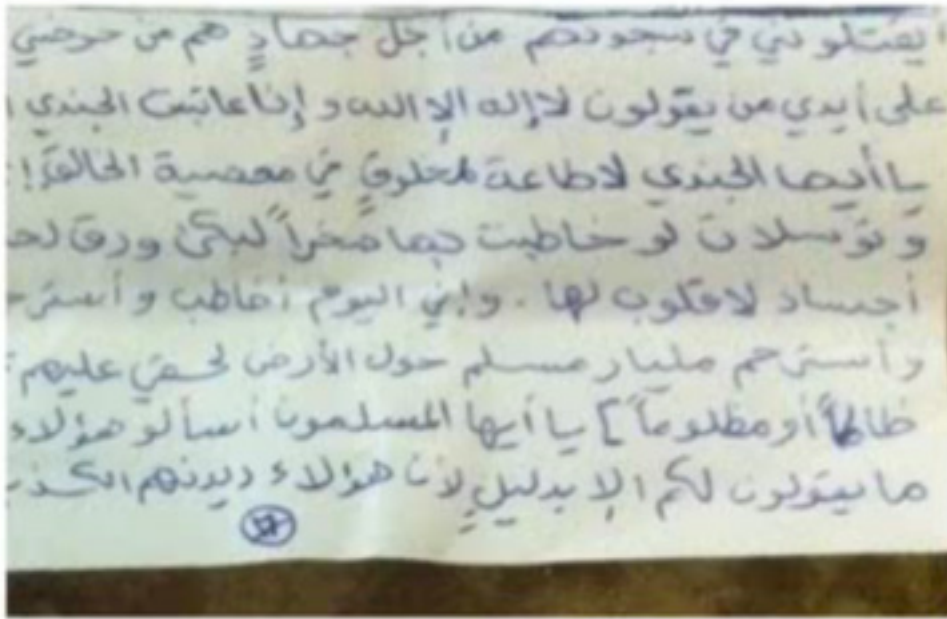 يقتلونني في سجونهم من أجل جهادٍ هم من حرضني
على أيدي من يقولون لا إله إلا الله و إنا عاتبت الجندي
يا أيها الجندي لا طاعة لمخلوقٍ في معصية الخالق!
و توسلات لو خاطبت بها صخراً لبكى ورق
أجساد لا قلوب لها . وإني اليوم أخاطب و أسترحم
وأسترحم مليار مسلم حول الأرض لحقي عليهم
ظالماً أو مظلوماً] يا أيها المسلمون أسألو هؤلاء
ما يقولون لكم إلا بدليلٍ لأن هؤلاء ديدنهم الكذب